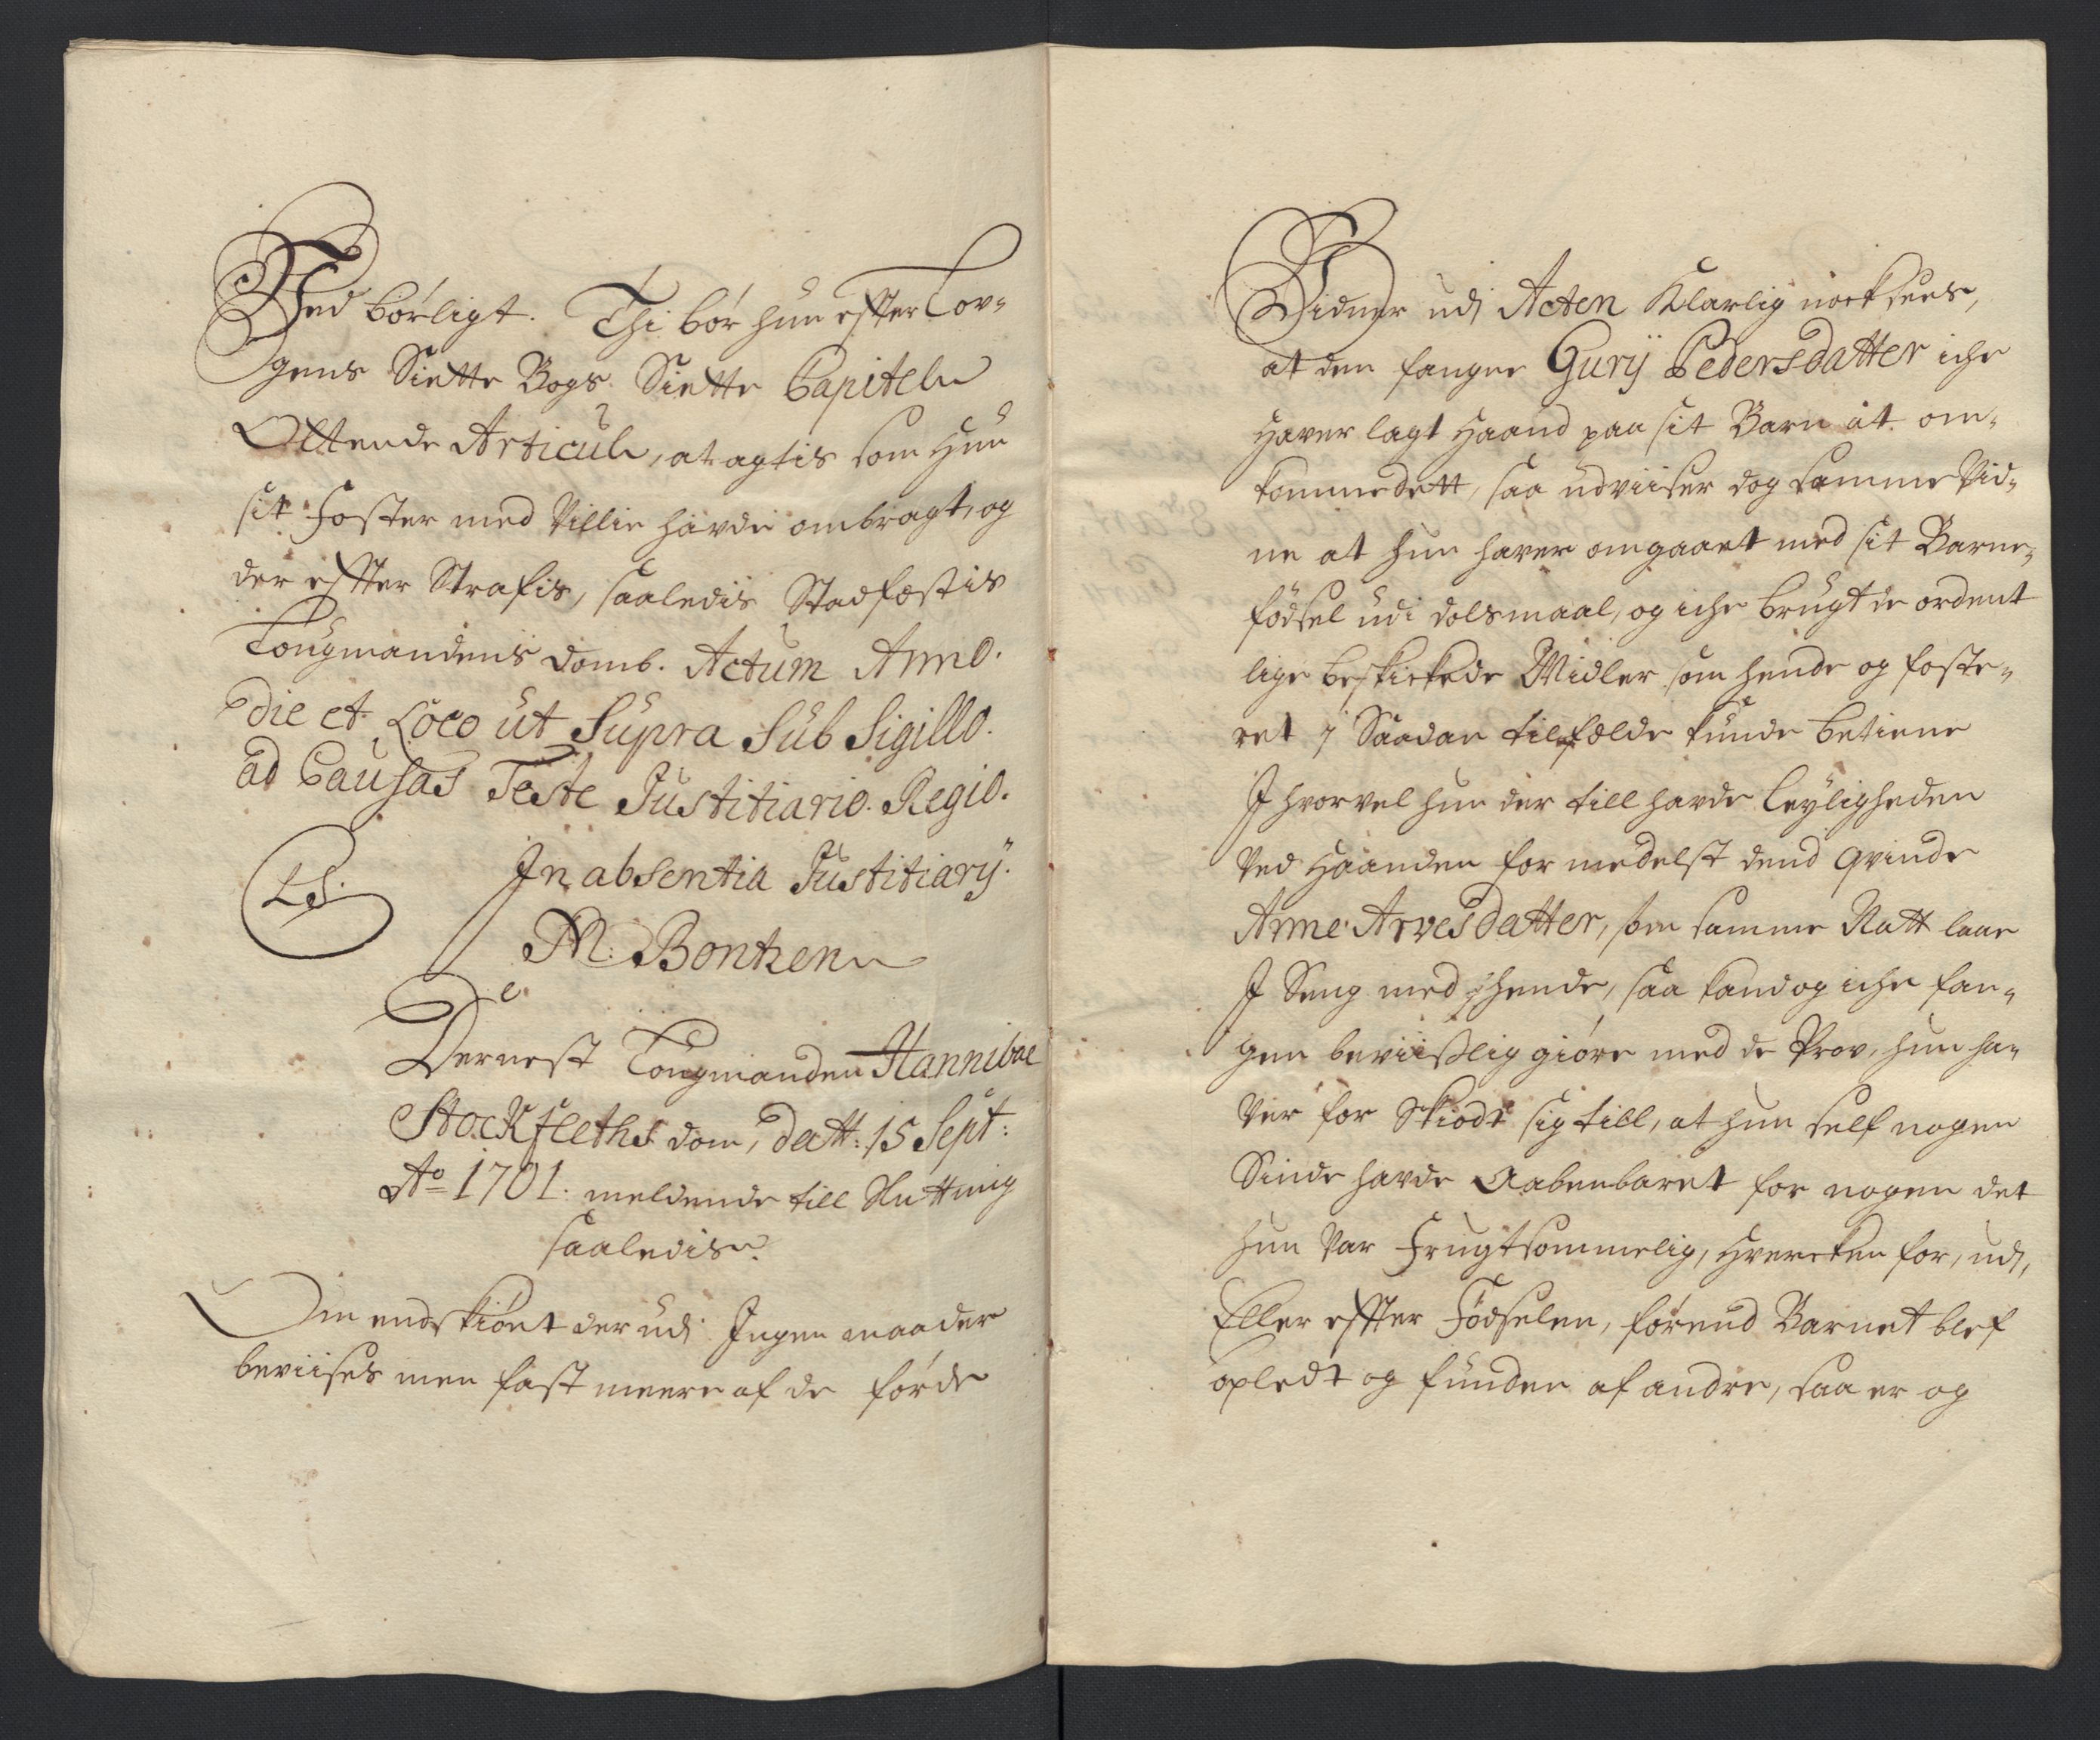 Ved börligt. Thi bör hun effter Lov-
gens Siette Bogs Siette Capitels
Ottende Articul, at agtis som Hun
sit Foster med Villie hafde ombragt, og
der effter Straffis, saaledis Stadfæstis
Laugmandens domb. Actum Anno.
die et Loco ut Supra Sub Sigillo.
ad Causas Teste Justitiario. Regio.
In absentia Justitiarij.
LS.
M: Bontzen
Dernest Laugmanden Hannibal
Stockfleths dom, datt: 15 Sept:
Ao 1701. meldende till Slutning
saaledis.
Om endskiönt der udi Ingen maader
beviises men fast meere af de förde
Vidner udi Acten Klarlig nock sees,
at den fangne Gurij Pedersdatter iche
Haver lagt Haand paa sit Barn at om-
komme dett, saa udviiser dog samme Vid-
ne at hun haver omgaaet med sit Barne-
födsel udi dolsmaal, og iche brugt de ordent
lige beskickede Midler som hende og foste-
ret i Saadan tilfælde kunde betiene
Ihvorvel hun der till havde leyligheden
Ved Haanden formedelst dend qvinde
Anne Arvesdatter, som samme Natt laae
I Seng med hende, saa kand og iche fan-
gen beviislig giöre med de Prov, hun ha-
ver for Skiödt sig till, at hun self nogen
Sinde havde Aabenbaret for nogen det
hun Var Frugtsommelig, Hvercken for, udi,
Eller effter Födselen, förend Barnet blef
opledt og funden af andre, saa er og